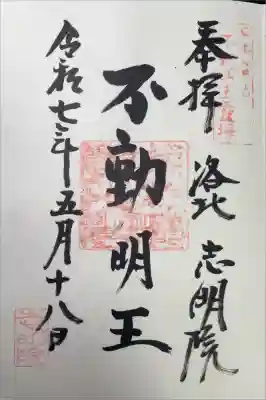 奉拝 洛北 志明院
不動明王
令和七年五月十八日